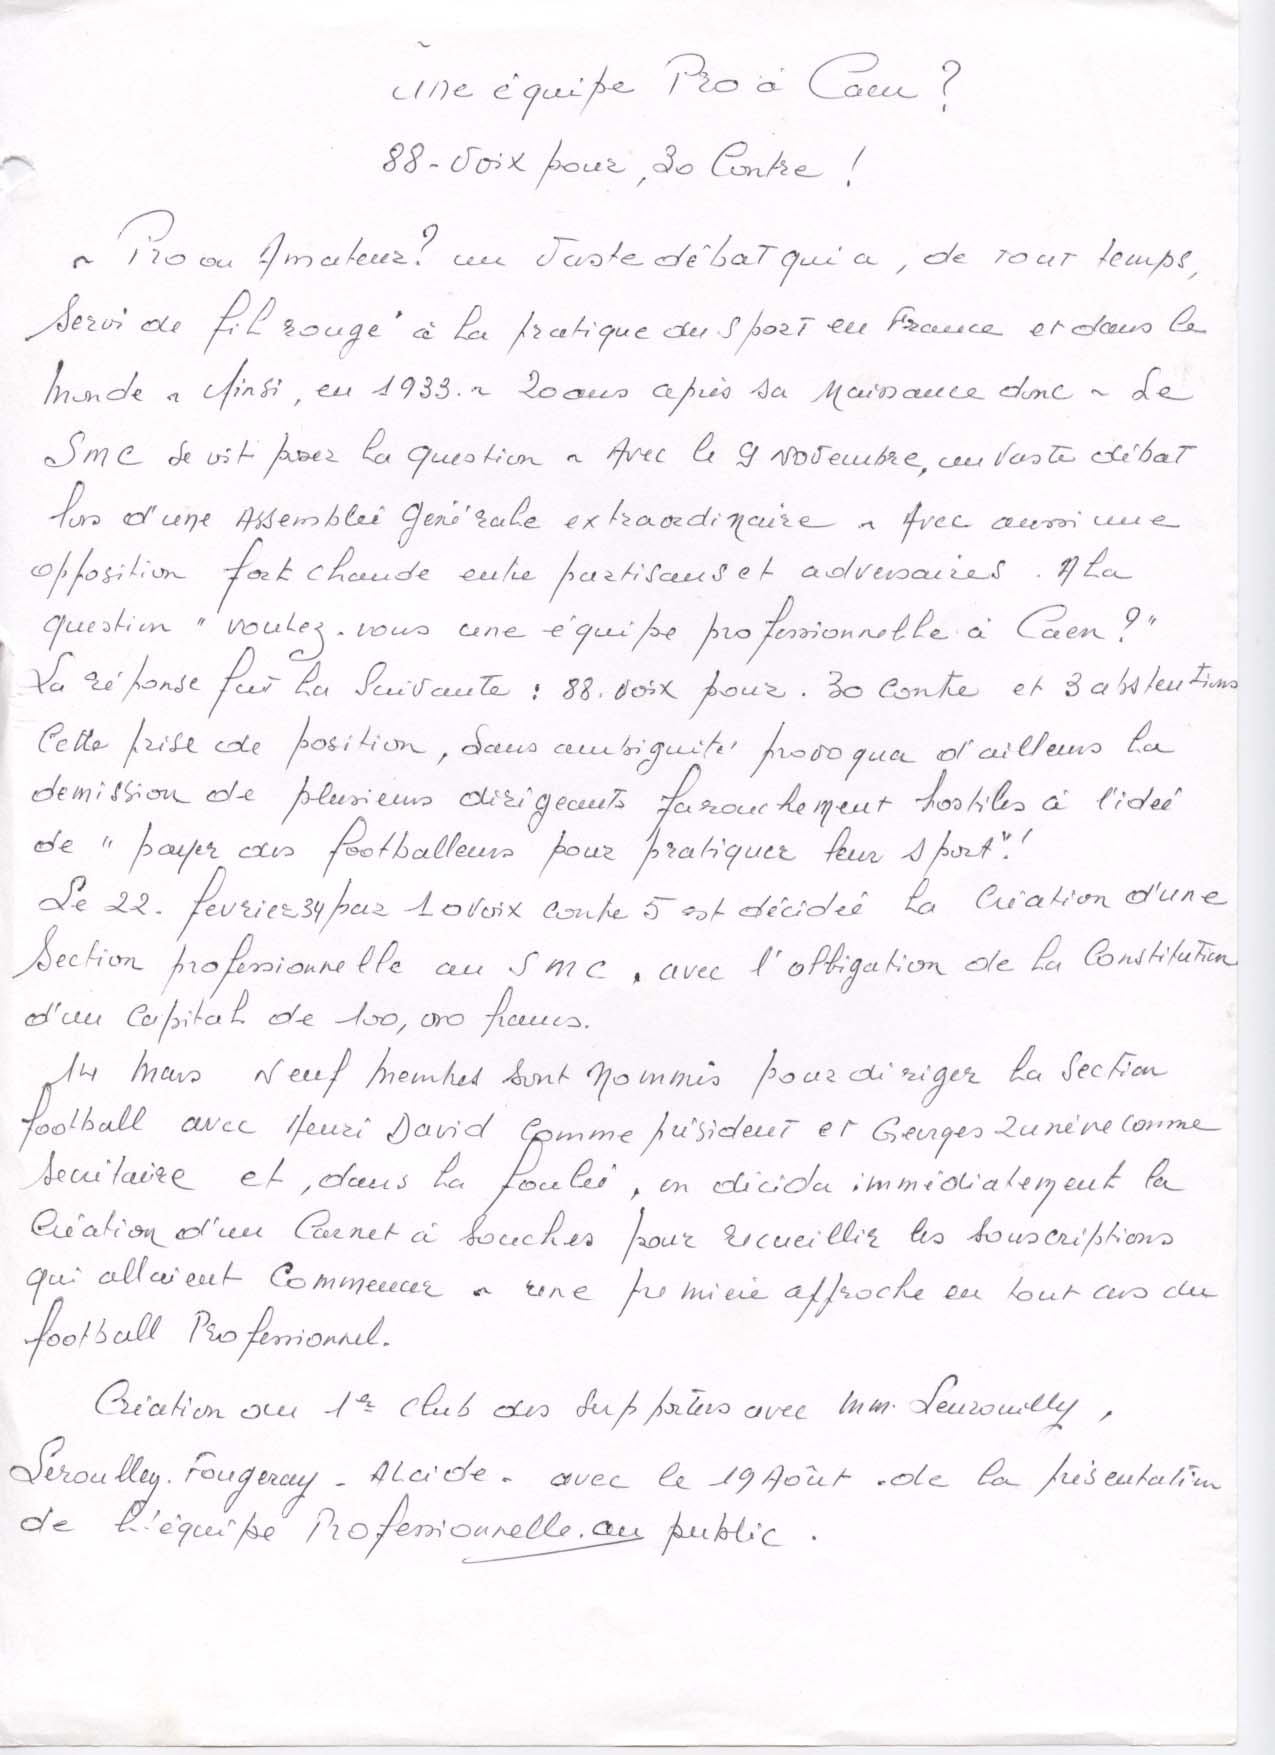 Une équipe Pro à Caen ?
88 - voix pour, 30 Contre !
~ Pro ou Amateur ? un vaste débat qui a, de tout temps,
servi de fil rouge à la pratique du sport en France et dans le
monde ~ Ainsi, en 1933. ~ 20 ans après sa naissance donc ~ Le
SMC se vit poser la question ~ Avec le 9 novembre, un vaste débat
lors d'une Assemblée générale extraordinaire ~ Avec aussi une
opposition fort chaude entre partisans et adversaires. A la
question " voulez-vous une équipe professionnelle à Caen ? "
La réponse fut la suivante : 88. voix pour. 30 contre et 3 abstentions
Cette prise de position, sans ambiguité provoqua d'ailleurs la
demission de plusieurs dirigeants farouchement hostiles à l'idée
de " payer des footballeurs pour pratiquer leur sport". !
Le 22. fevrier 34 par 10 voix contre 5 est décidée la Création d'une
Section professionnelle au SMC, avec l'obligation de la Constitution
d'un Capital de 100,000 francs.
14 Mars Neuf membres sont nommés pour diriger la Section
football avec Henri David comme président et Georges comme
secrétaire et, dans la foulée, on décida immédiatement la
Création d'un Carnet à souches pour recueillir les souscriptions
qui allaient Commencer ~ une première approche en tout cas du
football Professionnel.
Création du 1er Club des Supporters avec Mm. Leurouilly,
Leroulley. Fougeray - Alcide - avec le 19 Août . de la présentation
de l'équipe Professionnelle. au public.